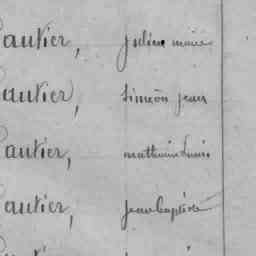 autier, julien marie
autier, simeon jean
autier, mathurin Louis
autier, jean baptiste